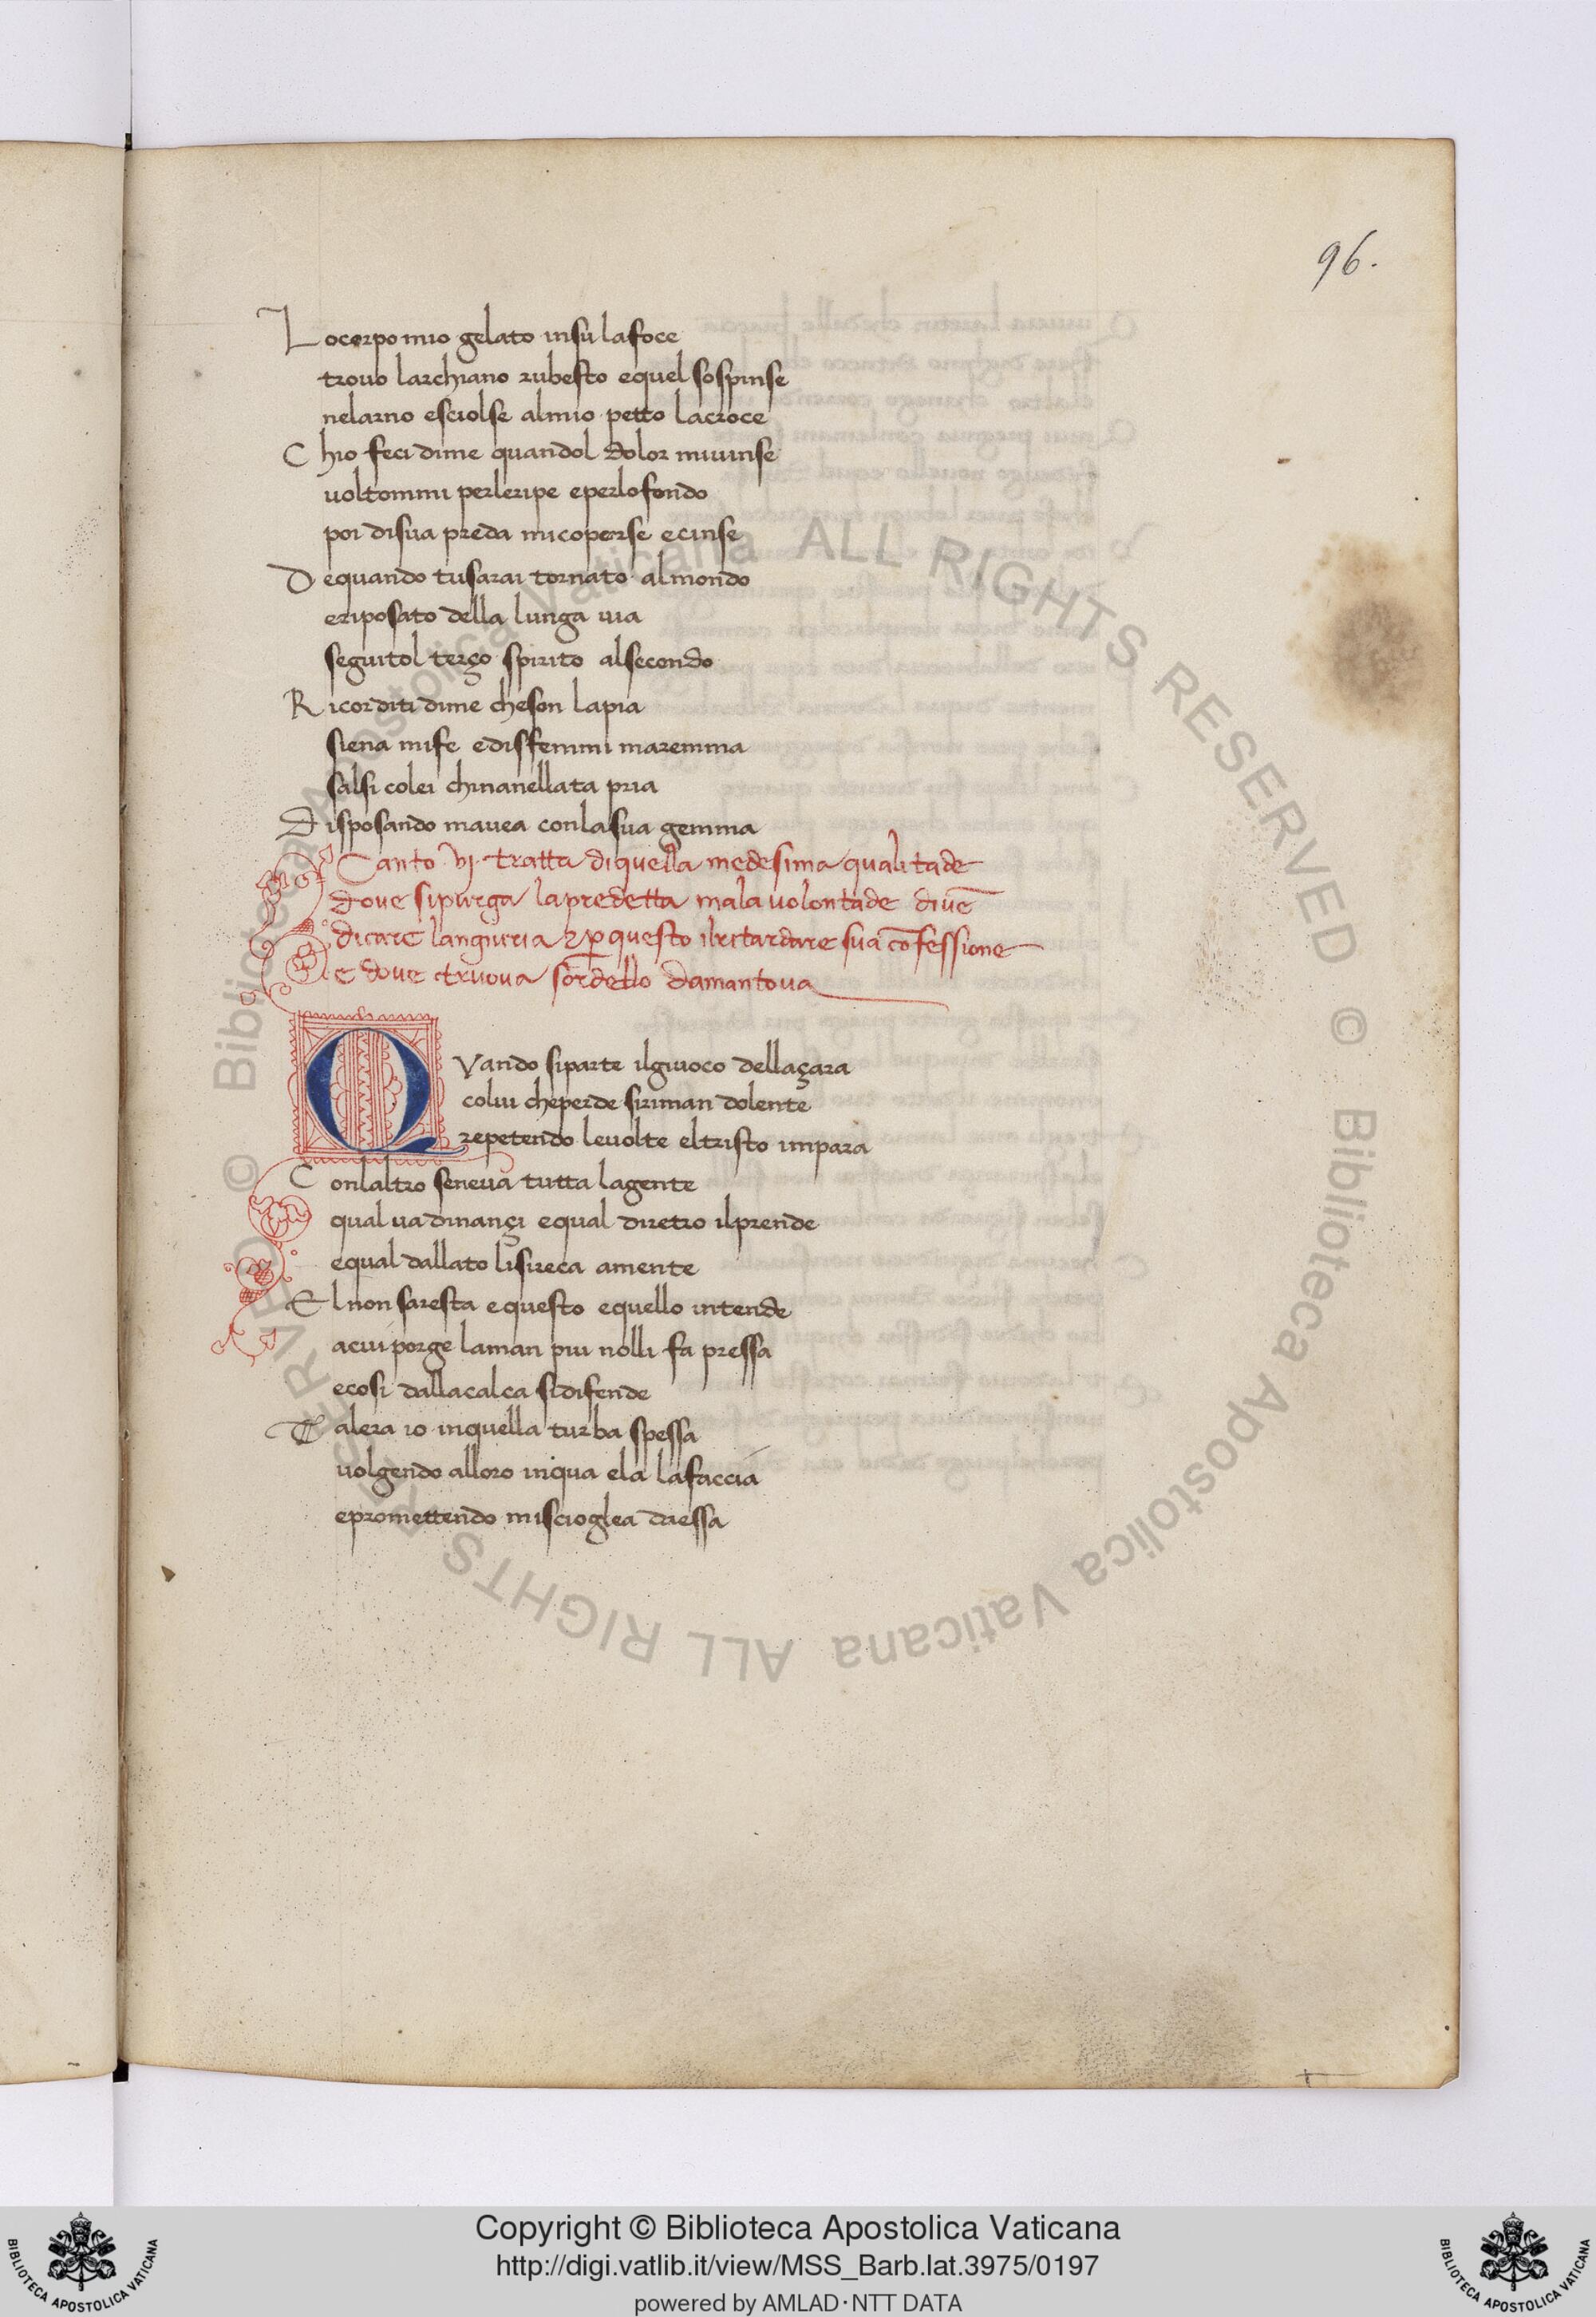 96.
L ocorpo mio gelato insu lafoce
trouo larchiano rubesto equel sospinse
nelarno esciolse almio petto lacroce
C hio feci dime quandol dolor miuinse
uoltommi perleripe eperlofondo
poi disua preda micoperse ecinse
D equando tusarai tornato almondo
eriposato della lunga uia
seguitol terço spirito alsecondo
R icorditi dime cheson lapia
siena mife edisfemmi maremma
salsi colei chinanellata pria
D isposando mauea conlasua gemma
Canto vj. tratta diquella medesima qualitade
doue sipurga lapredetta mala uolontade diuē
dicare langiuria ⁊ ꝑ questo ilritardare sua cōfessione
e doue truoua sordello damantoua
Q Vando siparte ilgiuoco dellaçara
colui cheperde siriman dolente
repetendo leuolte eltristo impara
C onlaltro seneua tutta lagente
qual ua dinançi equal diretro ilprende
equal dallato lisireca amente
E lnon saresta equesto equello intende
acui porge laman piu nolli fa pressa
ecosi dallacalca sidifende
T alera io inquella turba spessa
uolgendo alloro inqua ela lafaccia
epromettendo miscioglea daessa
© Biblioteca Apostolica Vaticana ALL RIGHTS RESERVED
© Biblioteca Apostolica Vaticana ALL RIGHTS RESERVED
BIBLIOTECA APOSTOLICA VATICANA
Copyright © Biblioteca Apostolica Vaticana
http://digi.vatlib.it/view/MSS_Barb.lat.3975/0197
powered by AMLAD·NTT DATA
BIBLIOTECA APOSTOLICA VATICANA